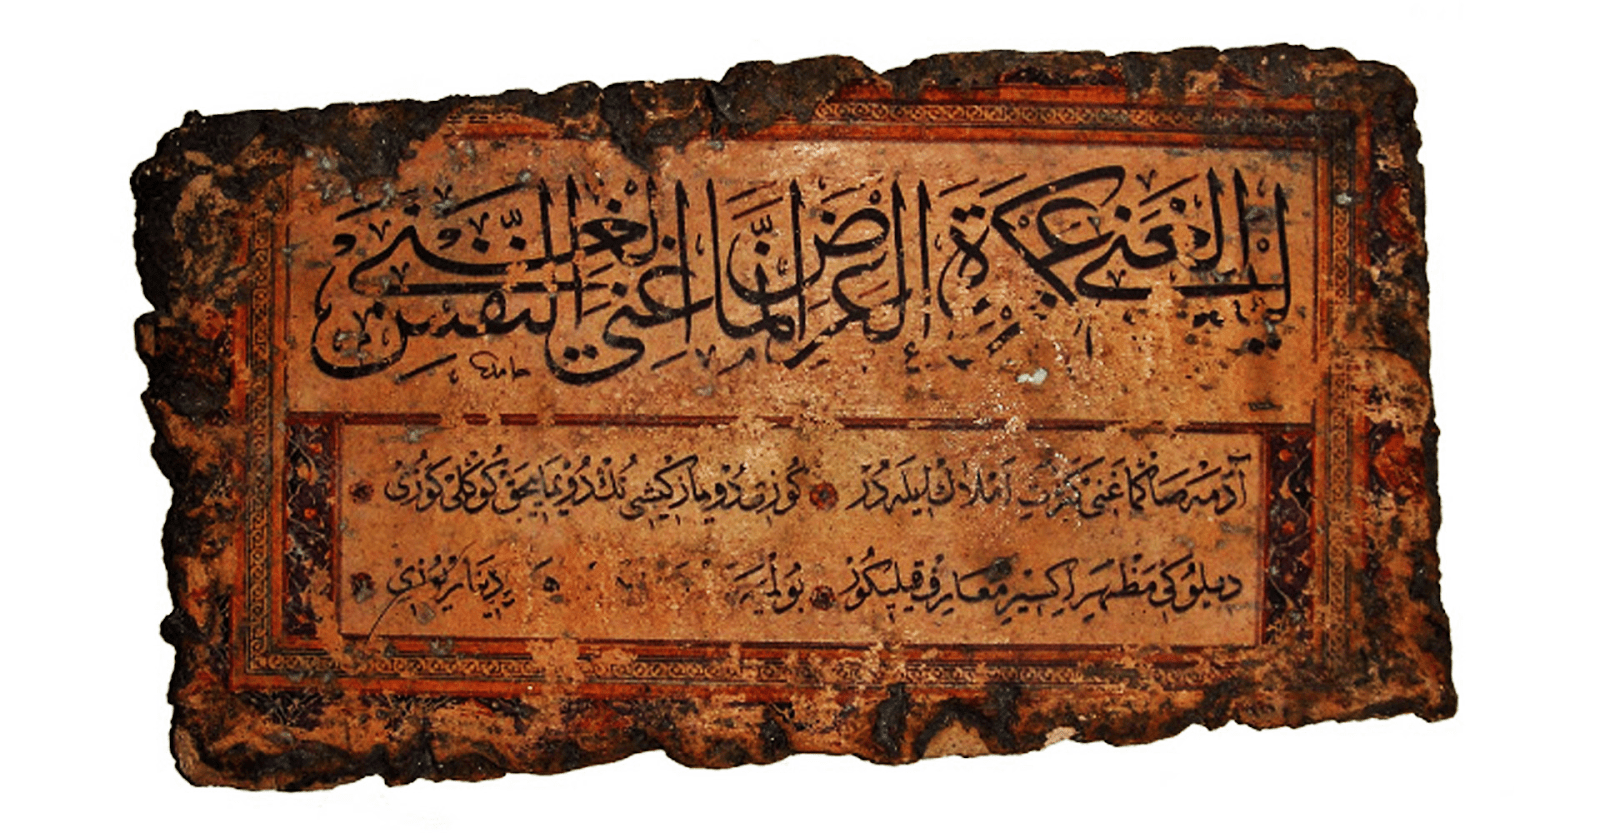 ليس الغنى عن كثرة العرض إنما الغنى غنى النفس
حامد
آدمه صانما غنى كثرت املاك ايله در كوزى دويماز كيشى نك دويمايجق كوكلى كوزى
مظهر اكسير معارف قيليكور دينار يوزى